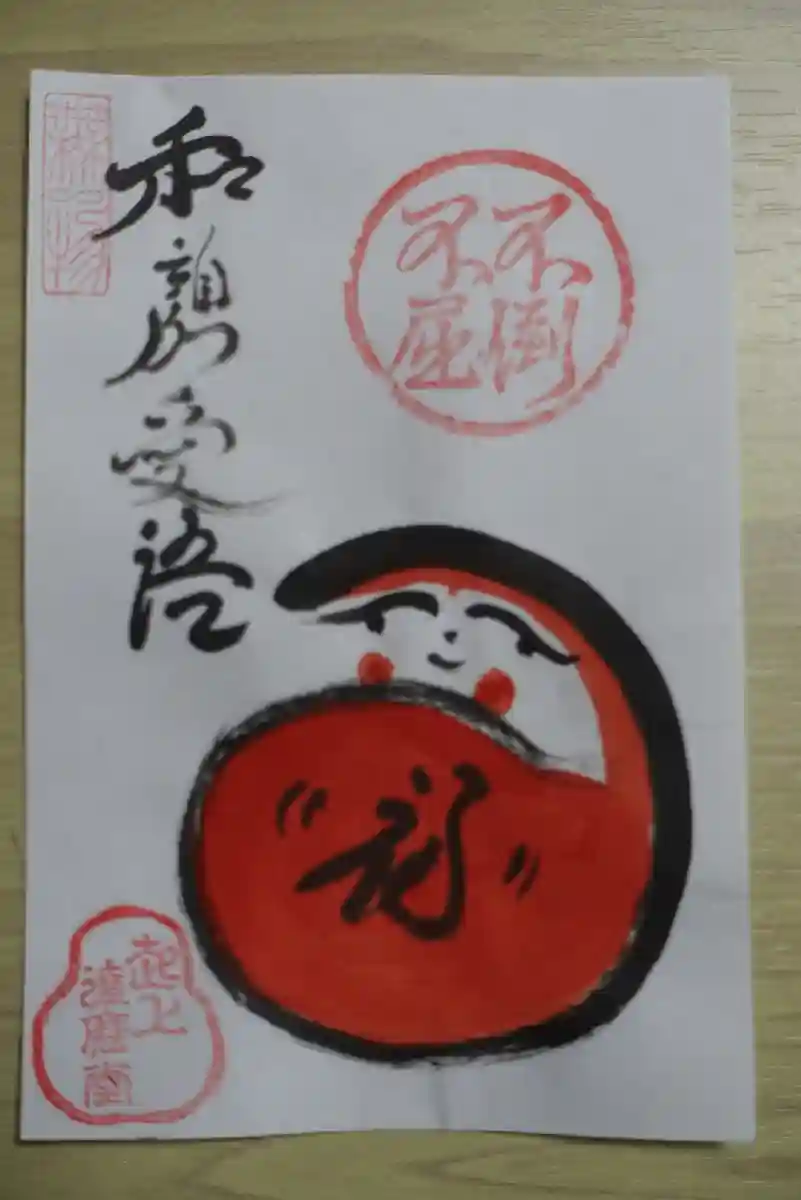 不倒
不屈
和顔愛語
起上
達磨堂